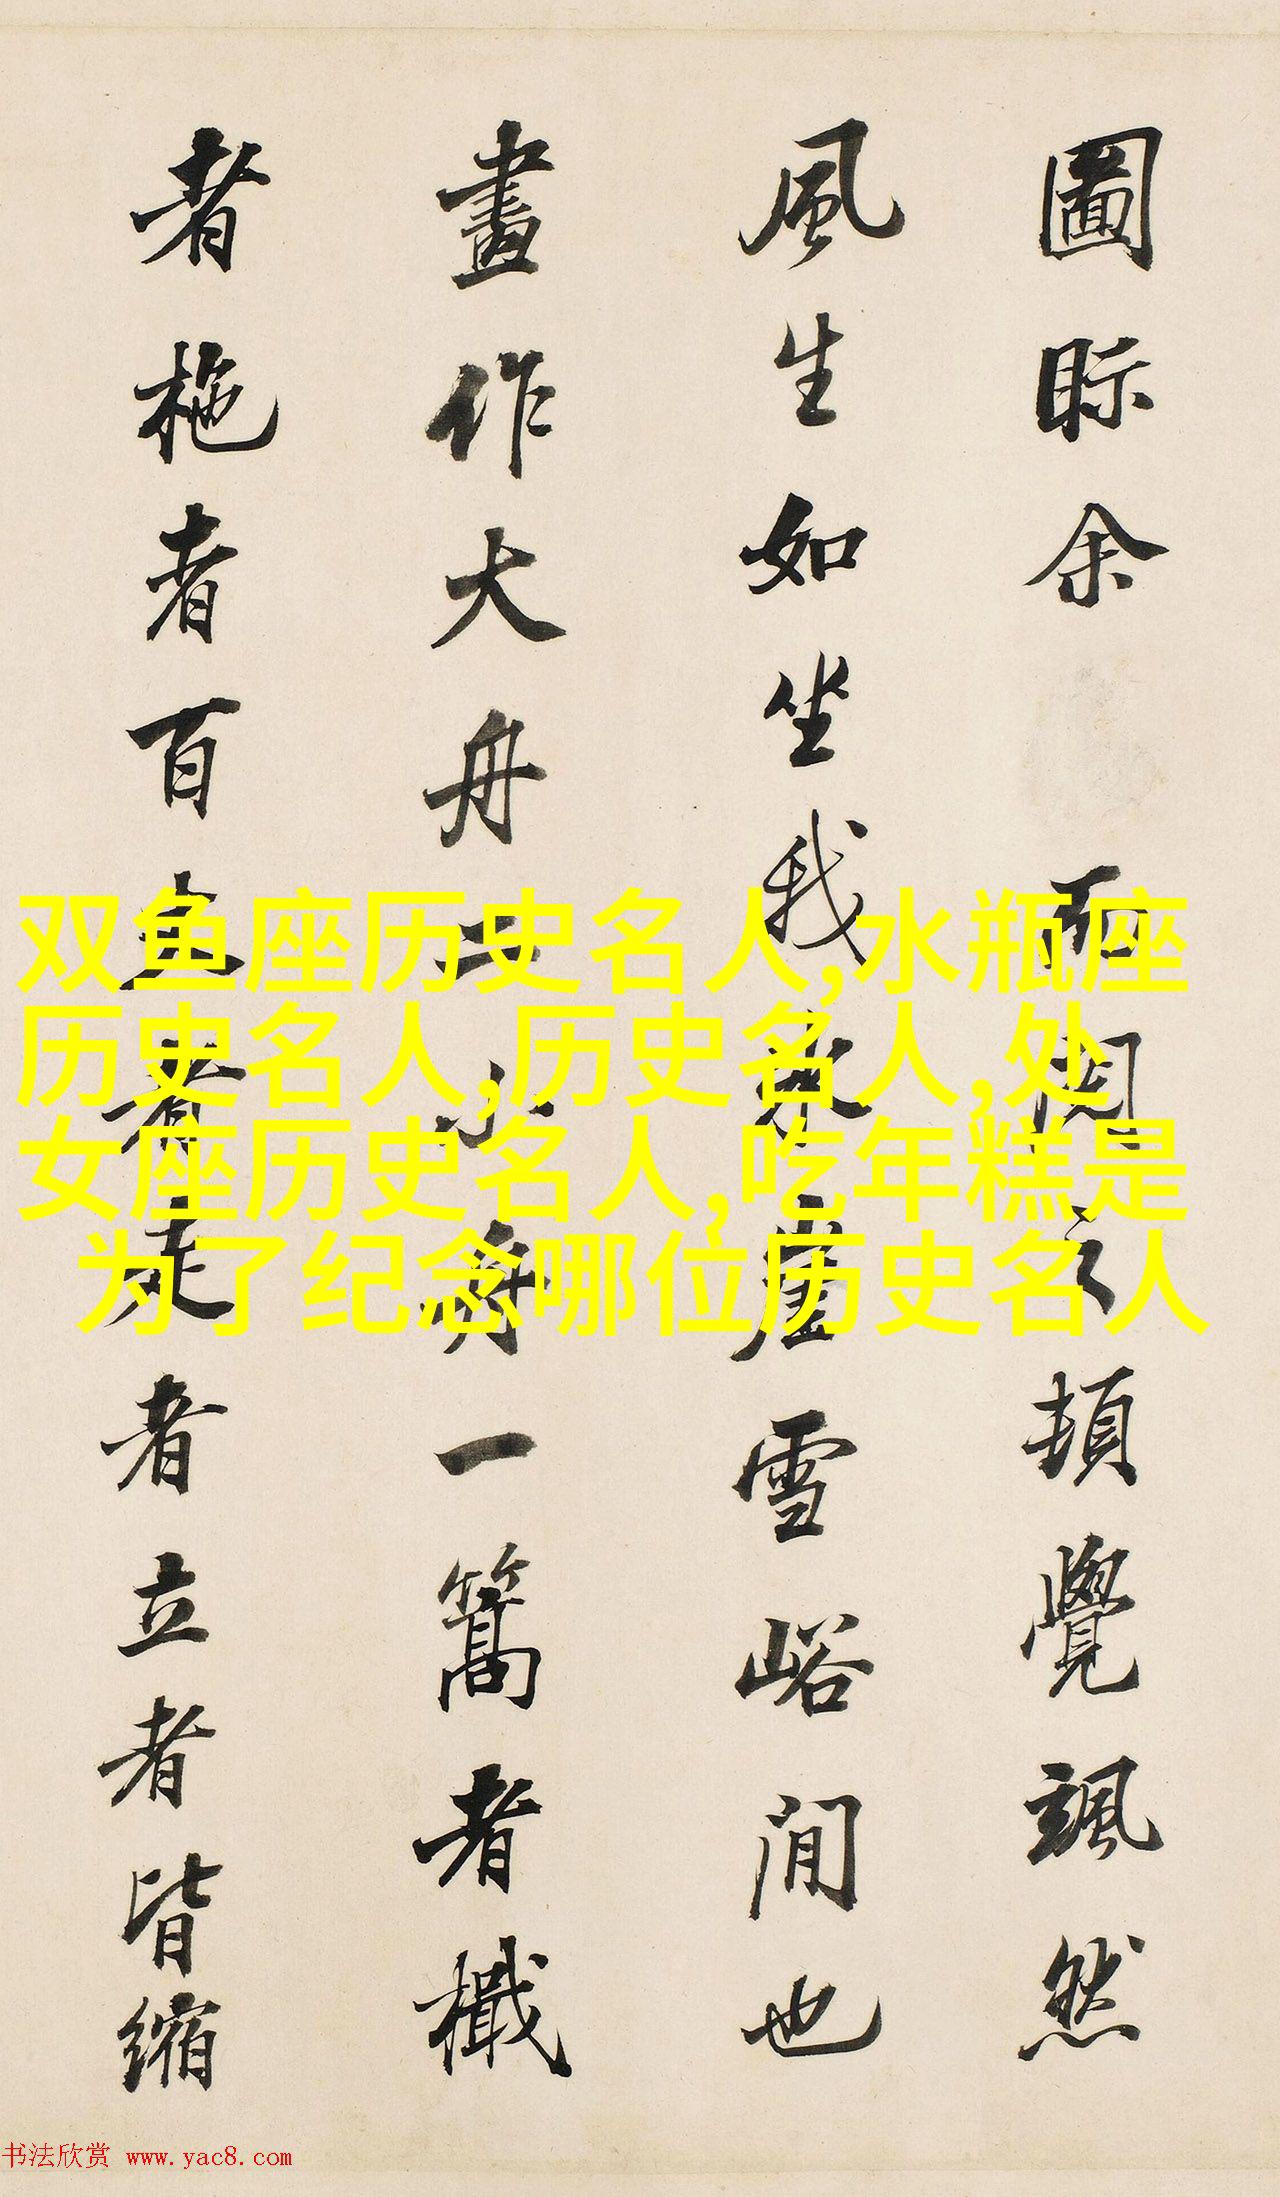 圖眎余而閱之頓覺颯然
風生如坐我氷崖雪峪間也
畫作大舟二小舟一篙者檝
者柂者百者走者立者皆縮
双鱼座历史名人,水瓶座
历史名人,历史名人,处
女座历史名人,吃年糕是
为了纪念哪位历史名人
书法欣赏 www.yac8.com